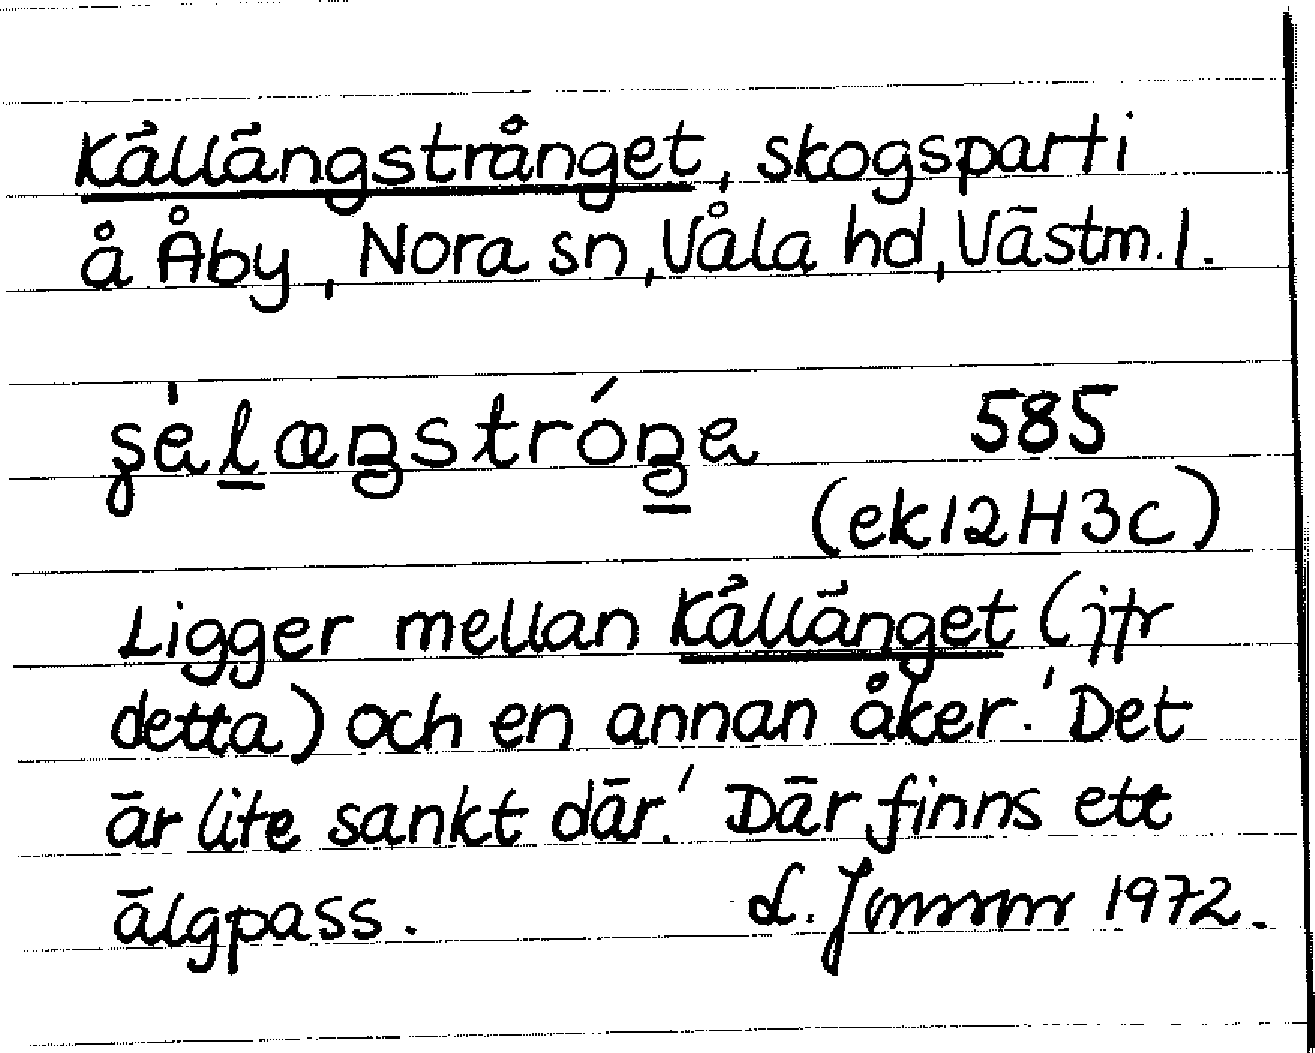 Källängstrånget, skogsparti
å Åby, Nora sn, Våla hd, Västm. l.
585
(ek 12H3c)
Ligger mellan Källänget (jfr
detta) och en annan åker. 'Det
är lite sankt där.' Där finns ett
älgpass. 1972.